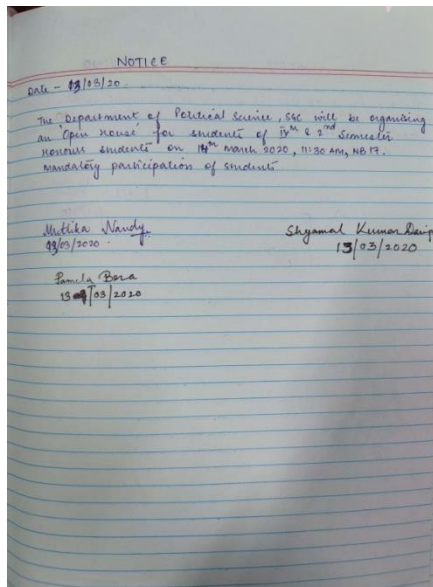 NOTICE
Date - 13/03/20.
The Department of Political Science, SSC will be organising
an 'Open House' for students of IVth & 2nd Semester
Honours students on 14th March 2020, 11:30 AM, NB 17.
Mandatory participation of students
Nandy
13/03/2020
Shyamal Kumar
13/03/2020
Pamela Bora
13/03/2020